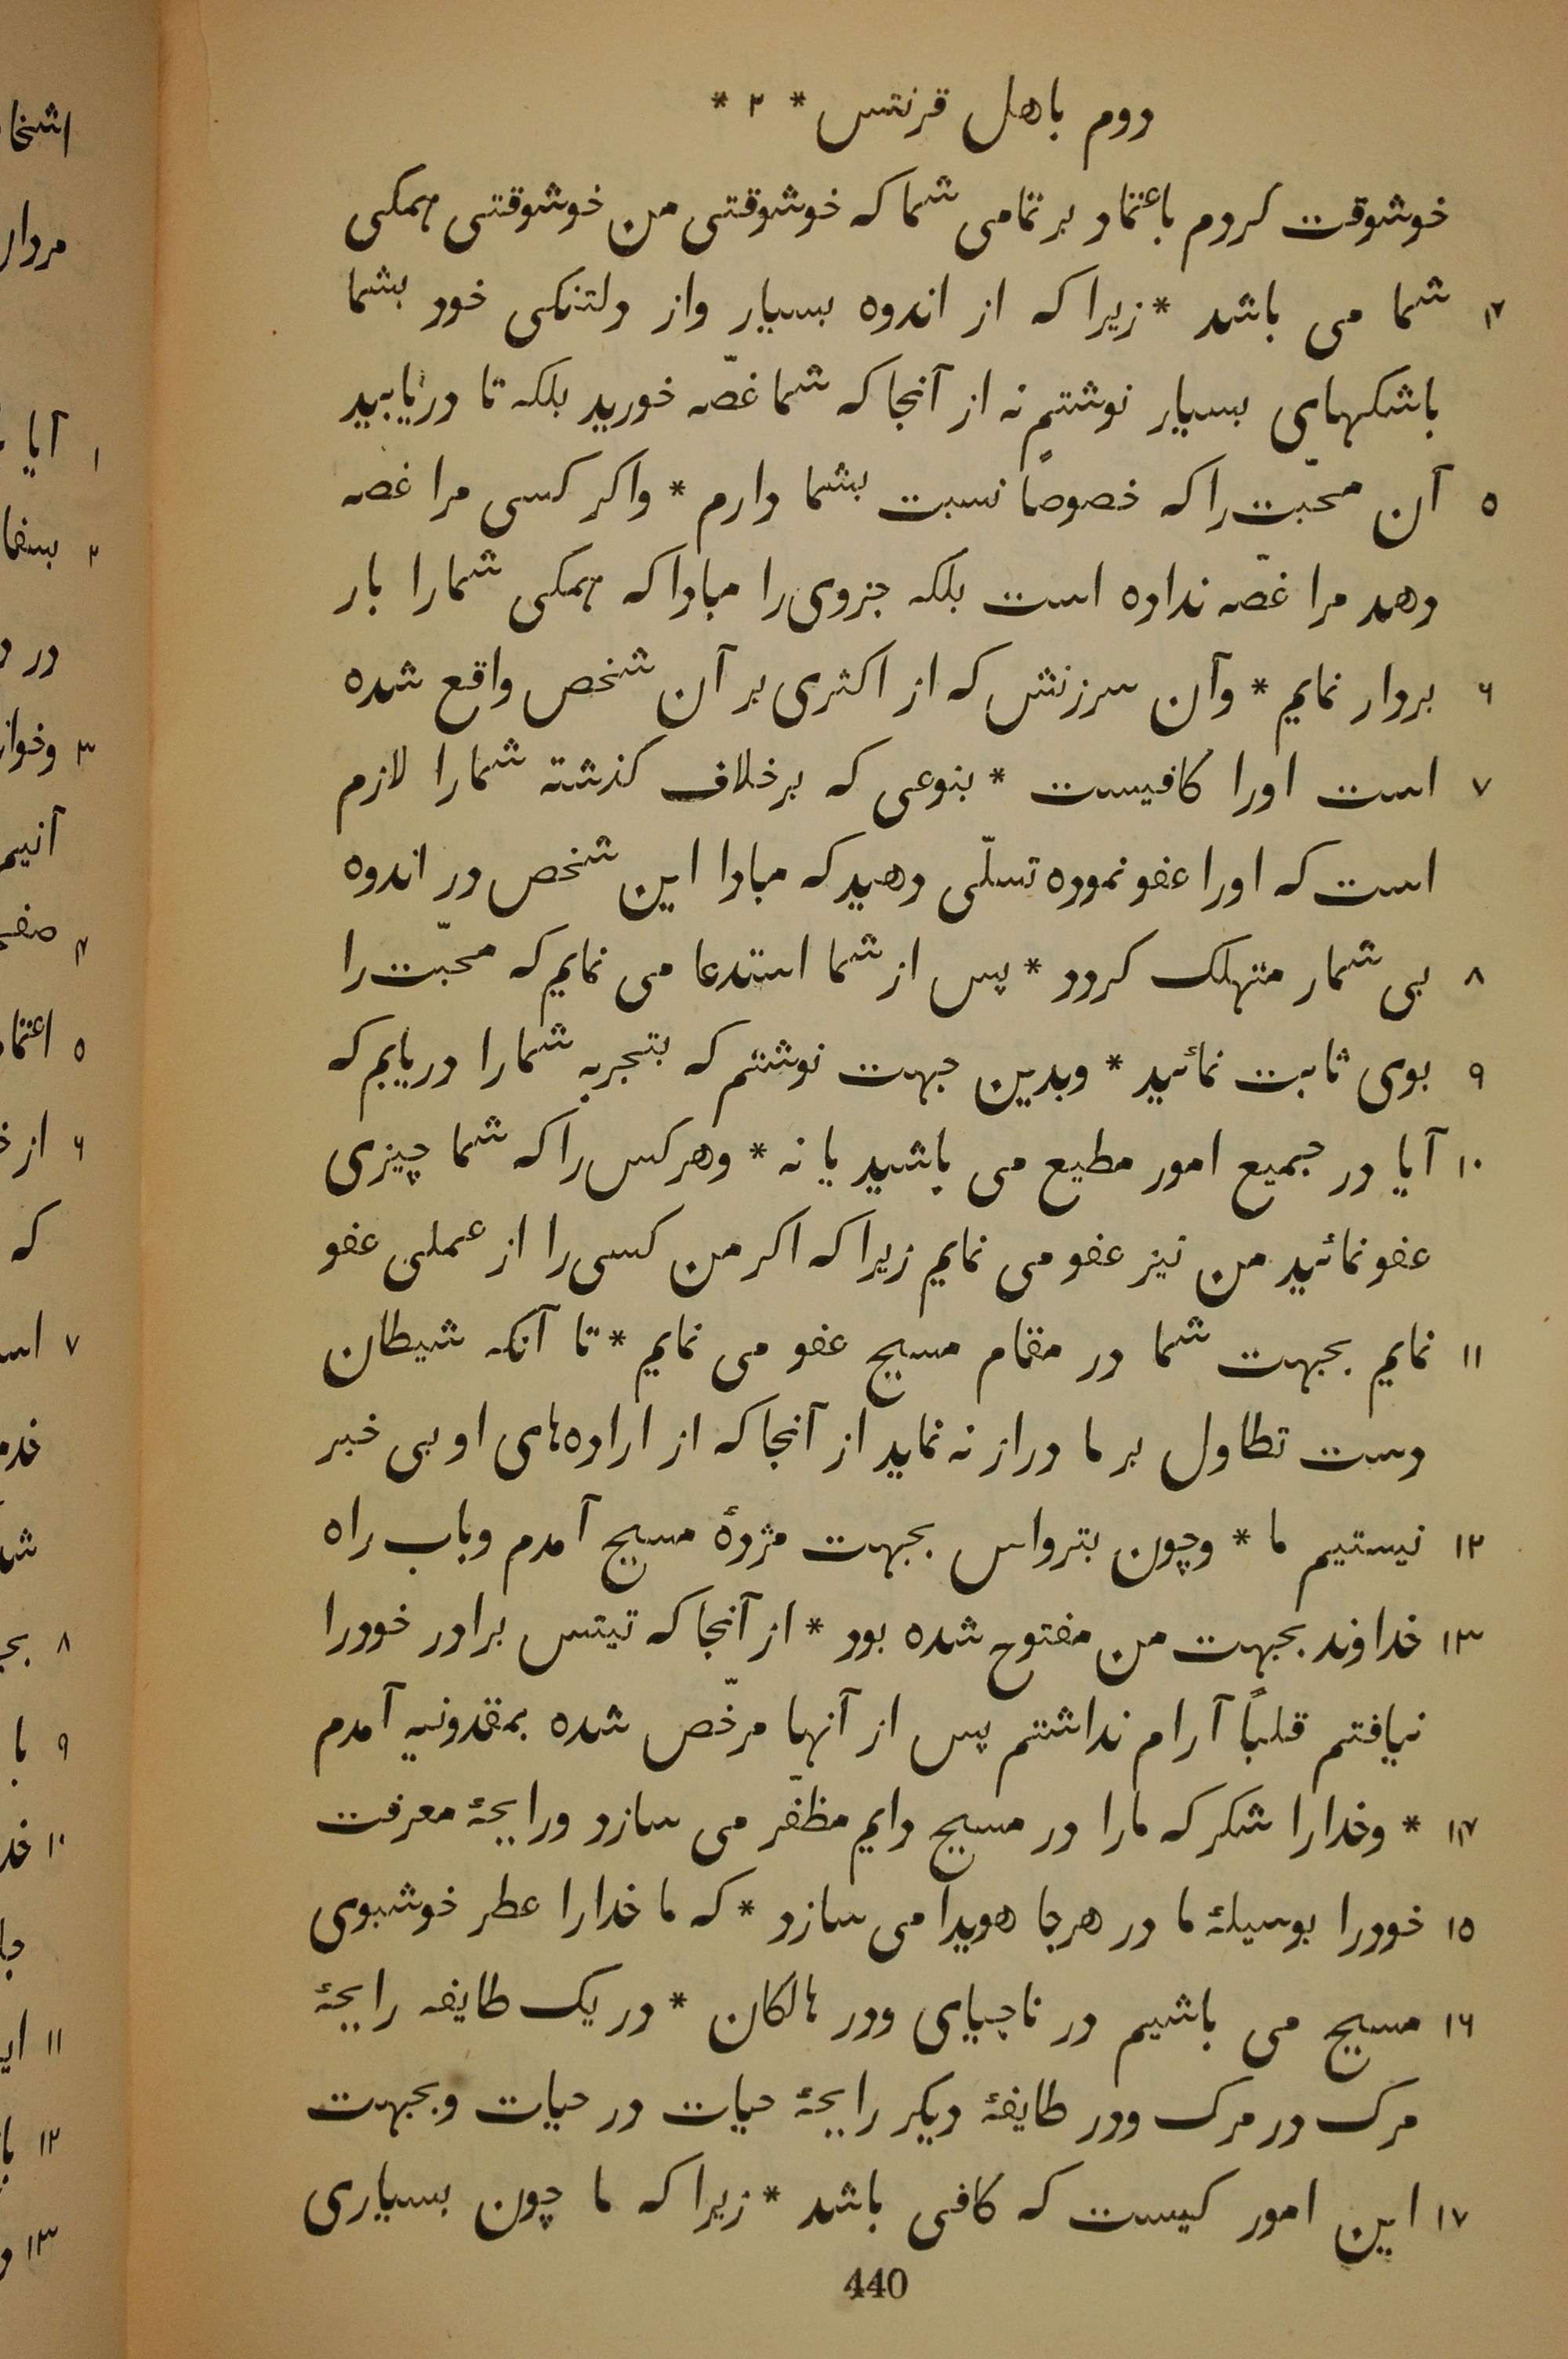 دوم باهل قرنتس * ٢ *
خوشوقت کردم باعتماد بر تمامی شما که خوشوقتی من خوشوقتی همکی
٤ شما می باشد * زیرا که از اندوه بسیار واز دلتنکی خود بشما
باشکهای بسیار نوشتم نه از آنجا که شما غصّه خورید بلکه تا دریابید
٥ آن محبّت را که خصوصاً نسبت بشما دارم * واکر کسی مرا غصه
دهد مرا غصّه نداده است بلکه جزوی را مبادا که همکی شمارا بار
٦ بردار نمایم * وآن سرزنش که از اکثری بر آن شخص واقع شده
٧ است اورا کافیست * بنوعی که برخلاف کذشته شمارا لازم
است که اورا عفو نموده تسلّی دهید که مبادا این شخص در اندوه
٨ بی شمار متهلک کردد * پس از شما استدعا می نمایم که محبّت را
٩ بوی ثابت نمائید * وبدین جهت نوشتم که بتجربه شمارا دریابم که
١٠ آیا در جمیع امور مطیع می باشید یا نه * وهر کس را که شما چیزی
عفو نمائید من نیز عفو می نمایم زیرا که اکر من کسی را از عملی عفو
١١ نمایم بجهت شما در مقام مسیح عفو می نمایم * تا آنکه شیطان
دست تطاول بر ما دراز نه نماید از آنجا که از اراده‌های او بی خبر
١٢ نیستیم ما * وچون بترواس بجهت مژدهٔ مسیح آمدم وباب راه
١٣ خداوند بجهت من مفتوح شده بود * از آنجا که تیتس برادر خودرا
نیافتم قلباً آرام نداشتم پس از آنها مرخّص شده بمقدونیه آمدم
١٤ * وخدارا شکر که مارا در مسیح دایم مظفّر می سازد ورایحهٔ معرفت
١٥ خودرا بوسیلهٔ ما در هرجا هویدا می سازد * که ما خدارا عطر خوشبوی
١٦ مسیح می باشیم در ناجیای ودر هالکان * در یک طایفه رایحهٔ
مرک در مرک ودر طایفهٔ دیکر رایحهٔ حیات در حیات وبجهت
١٧ این امور کیست که کافی باشد * زیرا که ما چون بسیاری
440